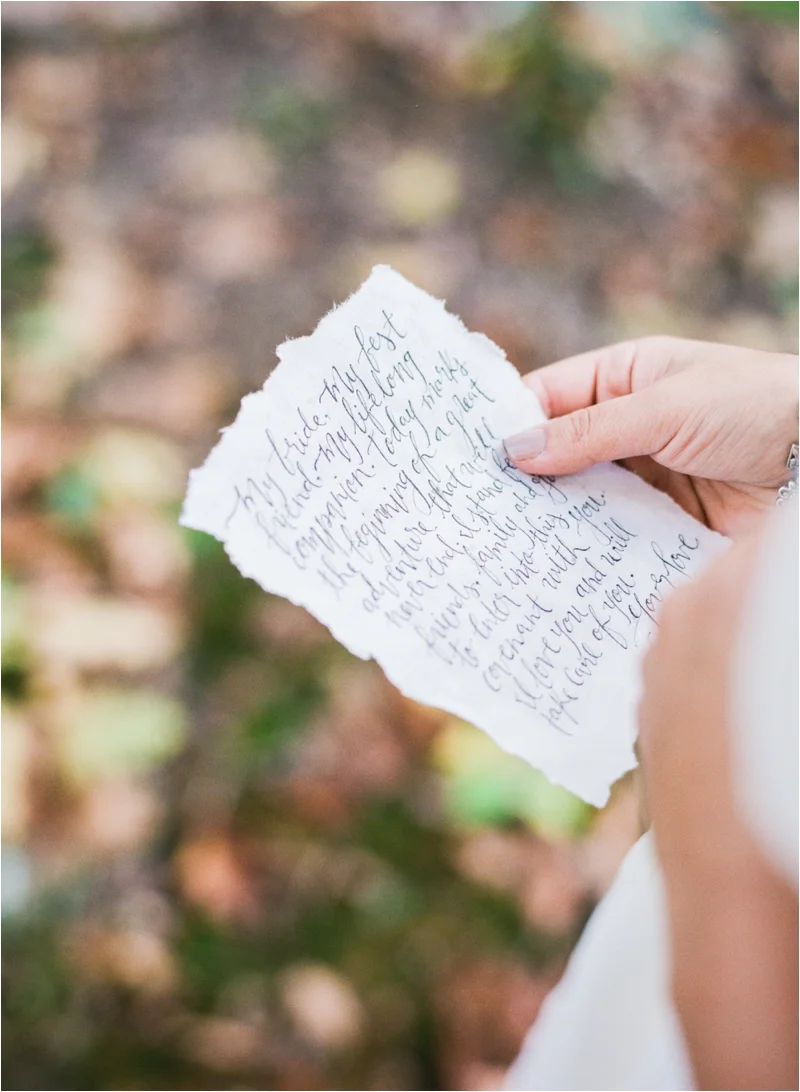 My bride. My best
friend. My lifelong
companion. Today marks
the beginning of a great
adventure that will
never end. I stand
friends, family and
to enter into this
covenant with you.
I love you and will
take care of you.
love